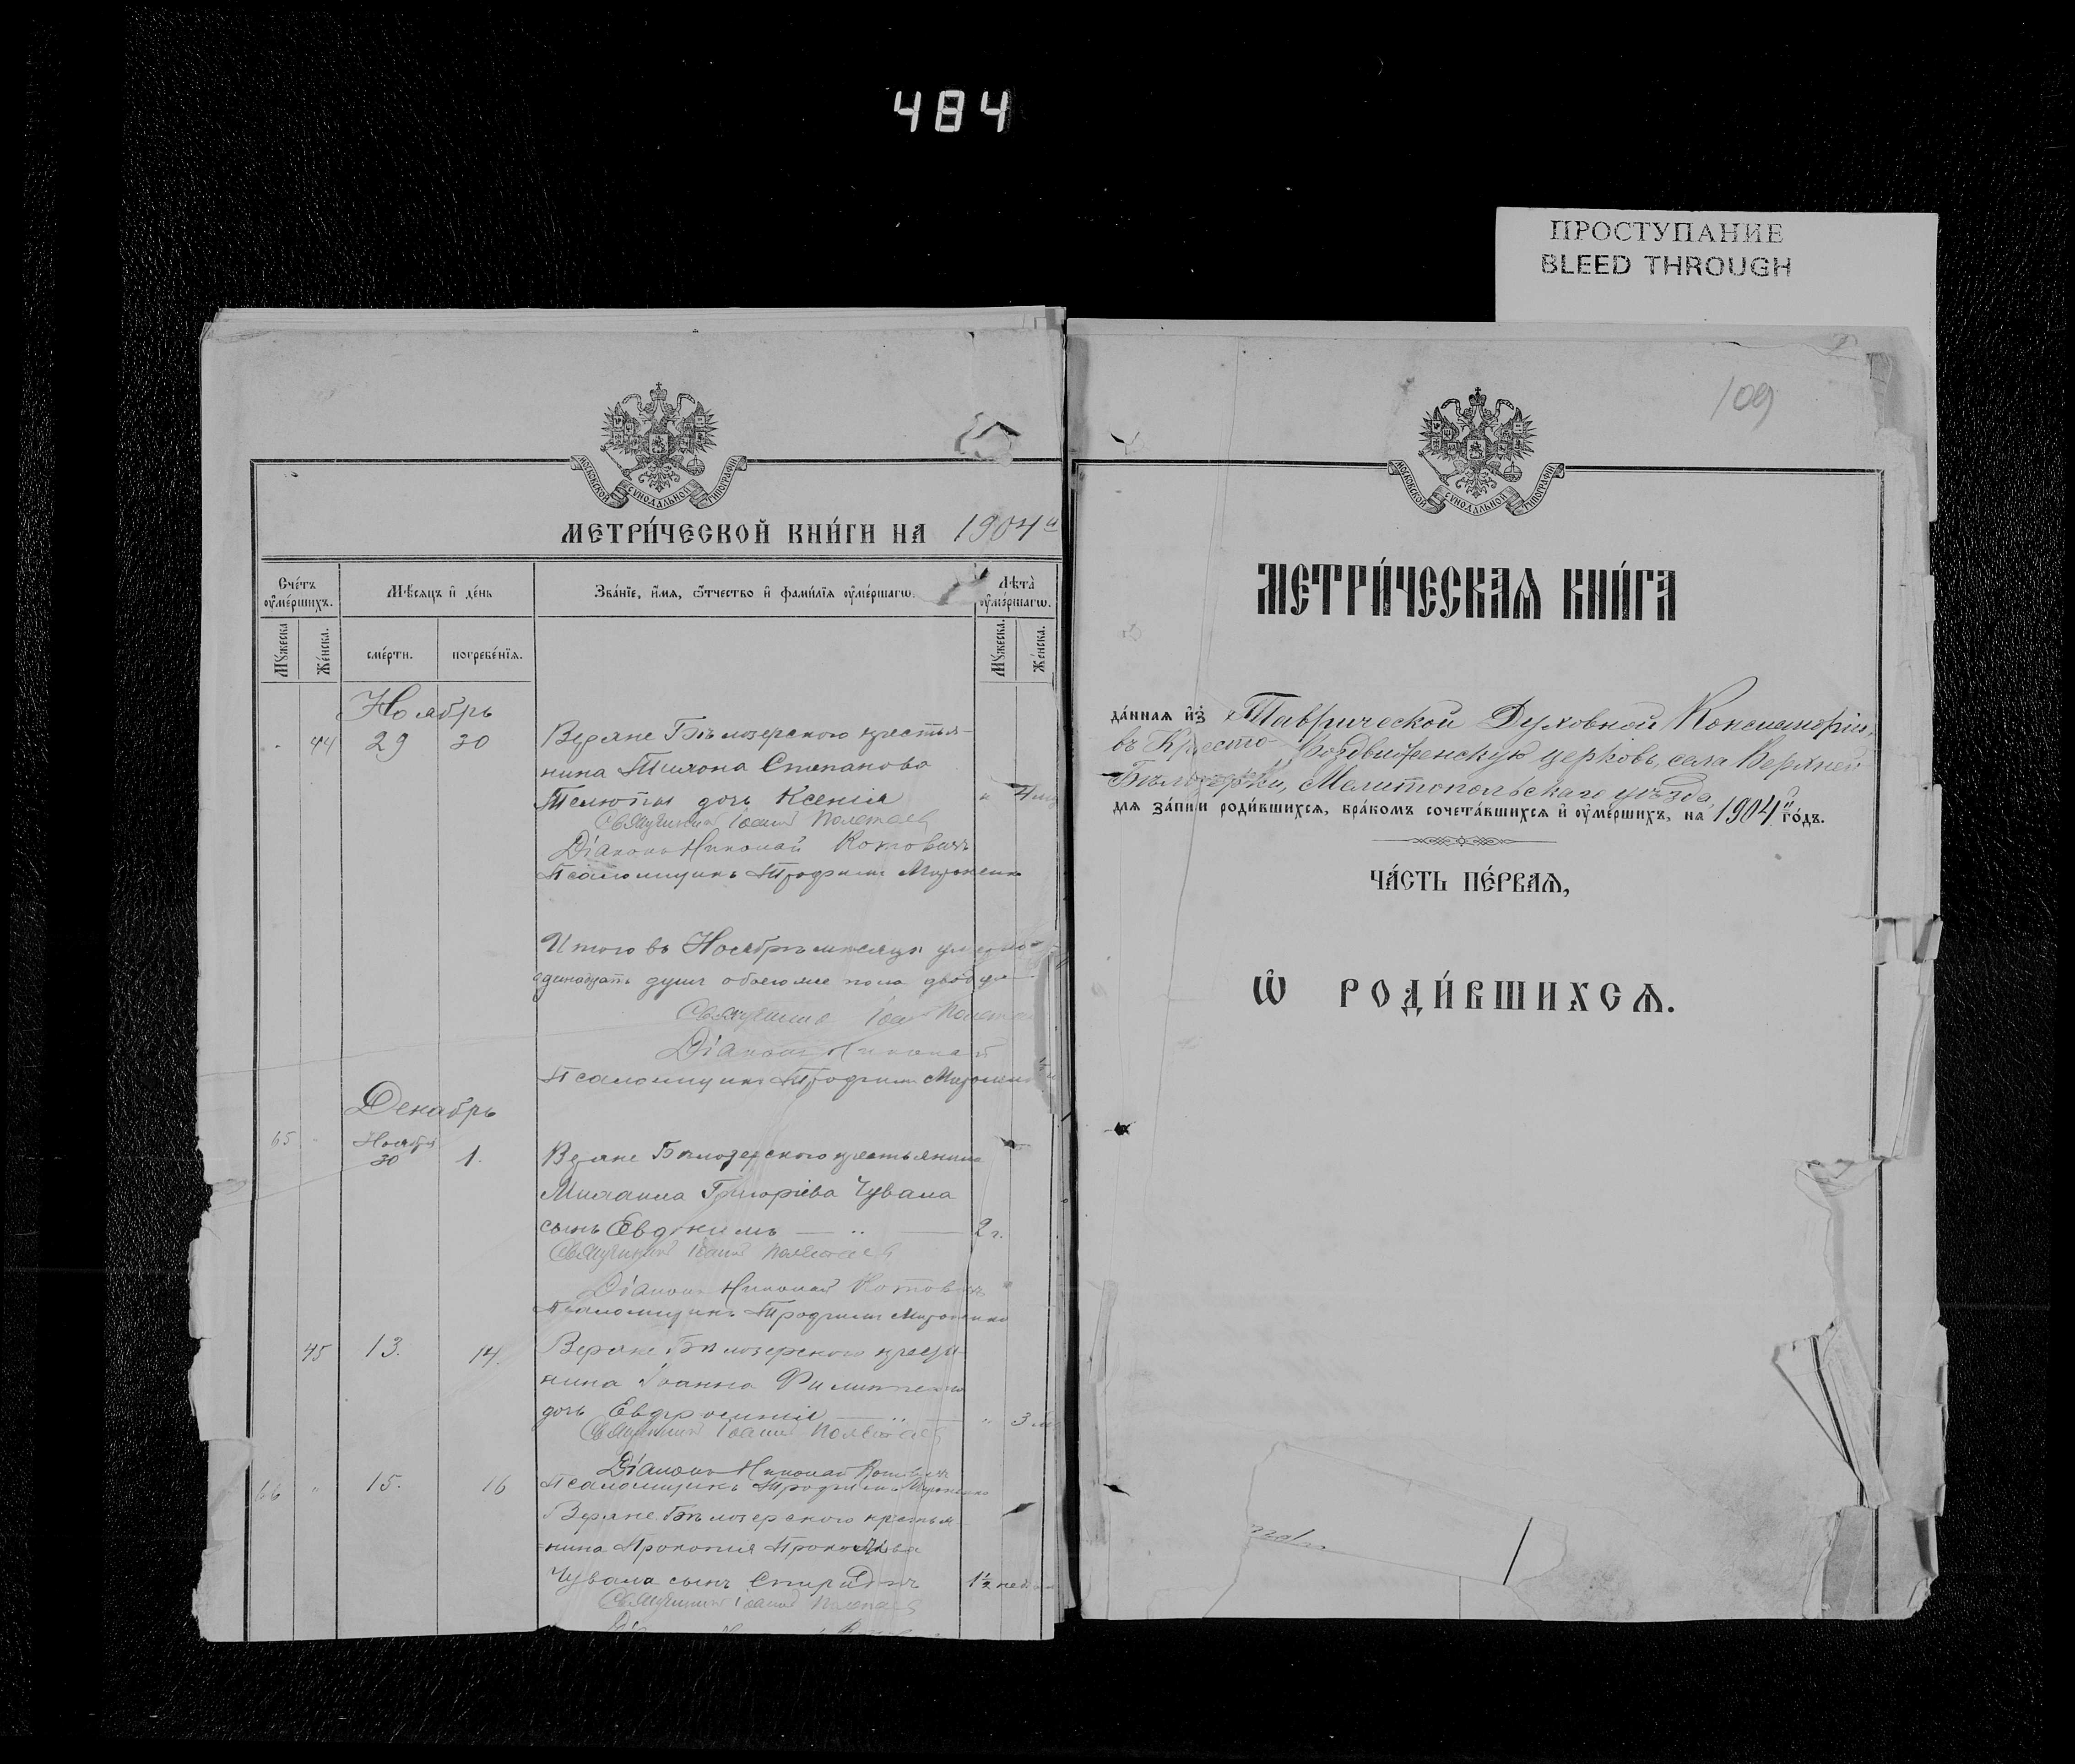 484
ПРОСТУПАНИЕ
BLEED THROUGH
МОСКОВСКОЙ СУНОДАЛЬНОЙ ТИПОГРАФІИ
МЕТРИ́ЧЕСКОЙ КНИ́ГИ НА 1904 й
Сче́тъ ᲂу҆ме́ршихъ.
Мѣ́сяцъ и҆ де́нь
Зва́нїе, и҆́мѧ, ѻ҆́тчество и҆ фами́лїѧ ᲂу҆ме́ршагѡ.
Лѣта̀ ᲂу҆ме́ршагѡ.
Мꙋ́жеска
Же́нска.
сме́рти.
погребе́нїѧ.
Мꙋ́жеска.
Же́нска.
Ноябрь
44 29 30 Верхне Бѣлозерского крестья-
нина Тихона Степанова
Телюты дочь Ксенія 4
Священникъ Іоаннъ Полетаевъ
Діаконъ Николай Котовичъ
Псаломщикъ Трофимъ Мироненко
Итого въ Ноябрѣ мѣсяцѣ
душъ обоего пола
Священникъ Іоа
Діаконъ Николай
Псаломщикъ Трофимъ Мироненко
Декабрь
65 " Ноября 30 1. Верхне Бѣлозерского крестьянина
Михаила Григоріева Чувала
сынъ Евдокимъ 2 г.
Священникъ Іоаннъ Полетаевъ
Діаконъ Николай Котовичъ
Псаломщикъ Трофимъ Мироненко
45 13. 14. Верхне Бѣлозерского крестья-
нина Іоанна Филиппова
дочь Евфросинія " 3
Священникъ Іоаннъ Полетаевъ
Діаконъ Николай Котовичъ
66 " 15. 16 Псаломщикъ Трофимъ Мироненко
Верхне Бѣлозерского крестья-
нина Прокопія Прокопьева
Чувала сынъ Спиридонъ 1½ нед
Священникъ Іоаннъ Полетаевъ
109
МОСКОВСКОЙ СУНОДАЛЬНОЙ ТИПОГРАФІИ
МЕТРИ́ЧЕСКАѦ КНИ́ГА
да́ннаѧ и҆з̾ Таврической Духовной Консисторіи,
въ Кресто-Воздвиженскую церковь, села Верхней
Бѣлозерки, Мелитопольскаго уѣзда,
длѧ за́писи роди́вшихсѧ, бра́комъ сочета́вшихсѧ и҆ ᲂу҆ме́ршихъ, на 1904 й го́дъ.
ЧА́СТЬ ПЕ́РВАѦ,
Ѡ҆ РОДИ́ВШИХСѦ.